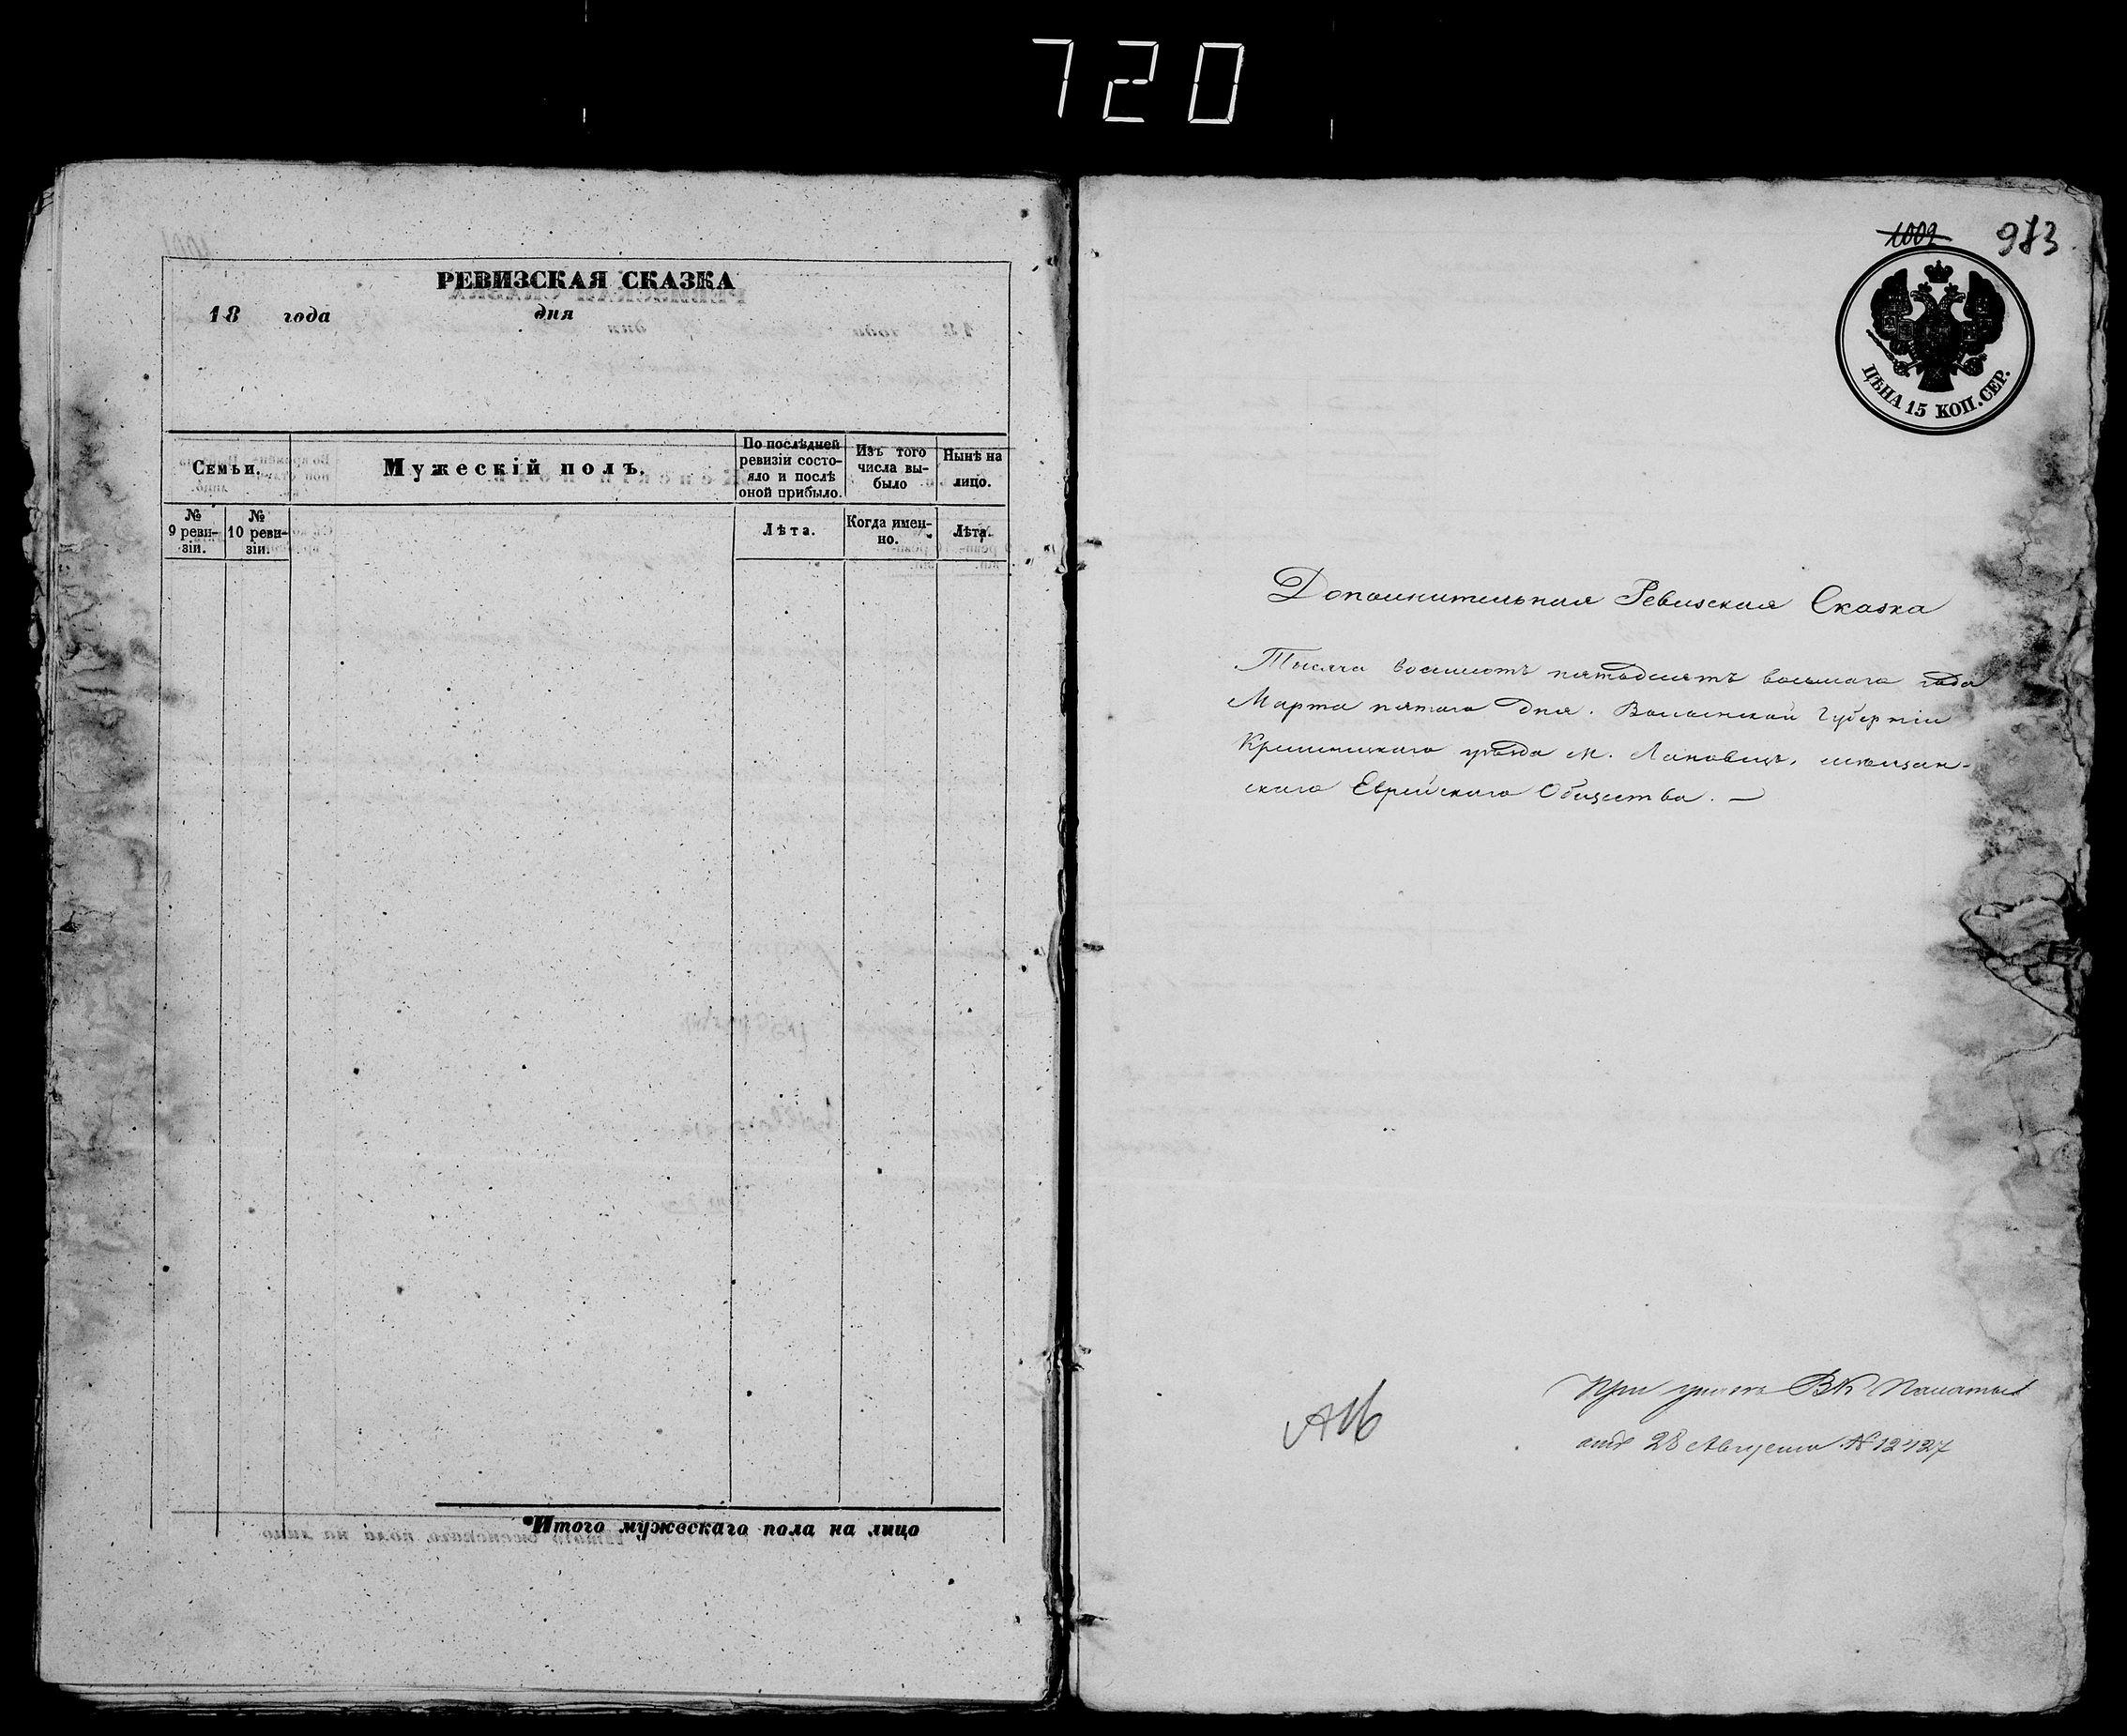 720
РЕВИЗСКАЯ СКАЗКА
18 года дня
Семьи.
Мужескій полъ.
По послѣдней ревизіи состо-
яло и послѣ
оной прибыло.
Изъ того
числа вы-
было
Нынѣ на
лицо.
№
9 реви-
зіи.
№
10 реви-
зіи.
Лѣта.
Когда имен-
но.
Лѣта.
Итого мужескаго пола на лицо
1009 983
ЦѢНА 15 КОП. СЕР.
Дополнительная Ревизская Сказка
Тысяча восемсотъ пятьдесятъ восьмаго года
Марта пятаго дня. Волынской Губерніи
Кременецкаго уѣзда м. Лановецъ, мѣщан-
скаго Еврейскаго Общества. —
При указѣ ВК Палаты
отъ 28 Августа № 12427